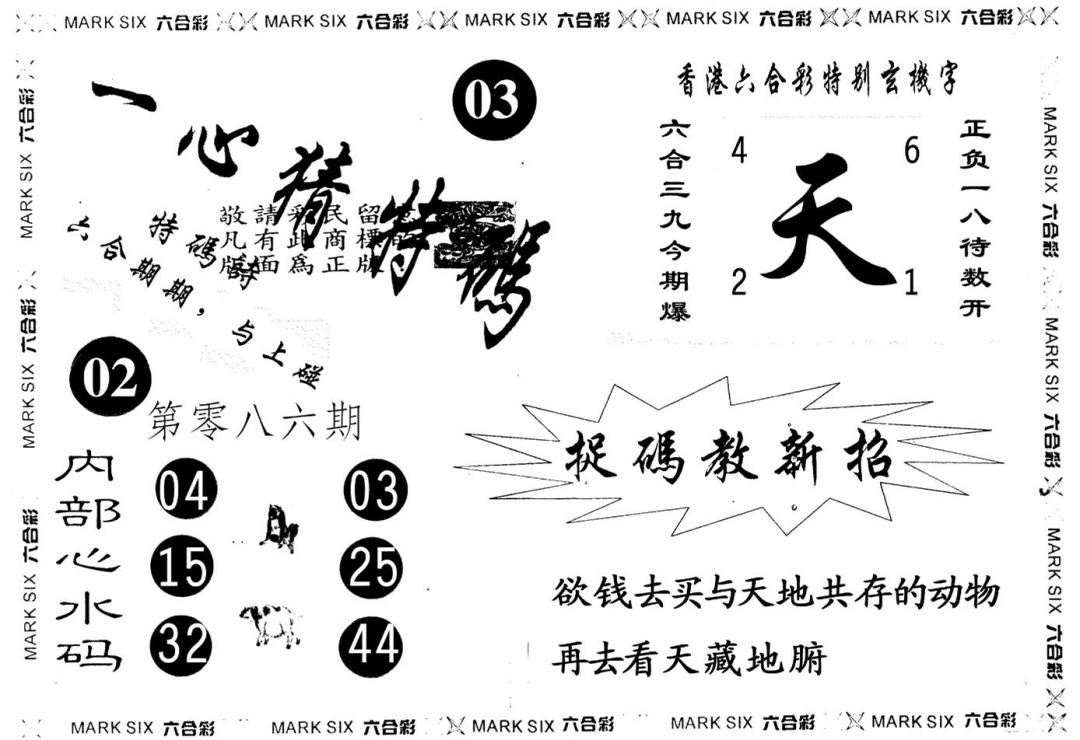 MARK SIX 六合彩 MARK SIX 六合彩 MARK SIX 六合彩 MARK SIX 六合彩 MARK SIX 六合彩
MARK SIX 六合彩
MARK SIX 六合彩
MARK SIX 六合彩
一心猜特碼
03
敬請彩民留意
凡有此商標的
版面為正版
特碼詩
六合期期，与上碰
02
第零八六期
内部心水码
04 03
15 25
32 44
香港六合彩特别玄機字
六合三九今期爆
4 6
天
2 1
正负一八待数开
捉碼教新招
欲钱去买与天地共存的动物
再去看天藏地腑
MARK SIX 六合彩
MARK SIX 六合彩
MARK SIX 六合彩
MARK SIX 六合彩 MARK SIX 六合彩 MARK SIX 六合彩 MARK SIX 六合彩 MARK SIX 六合彩